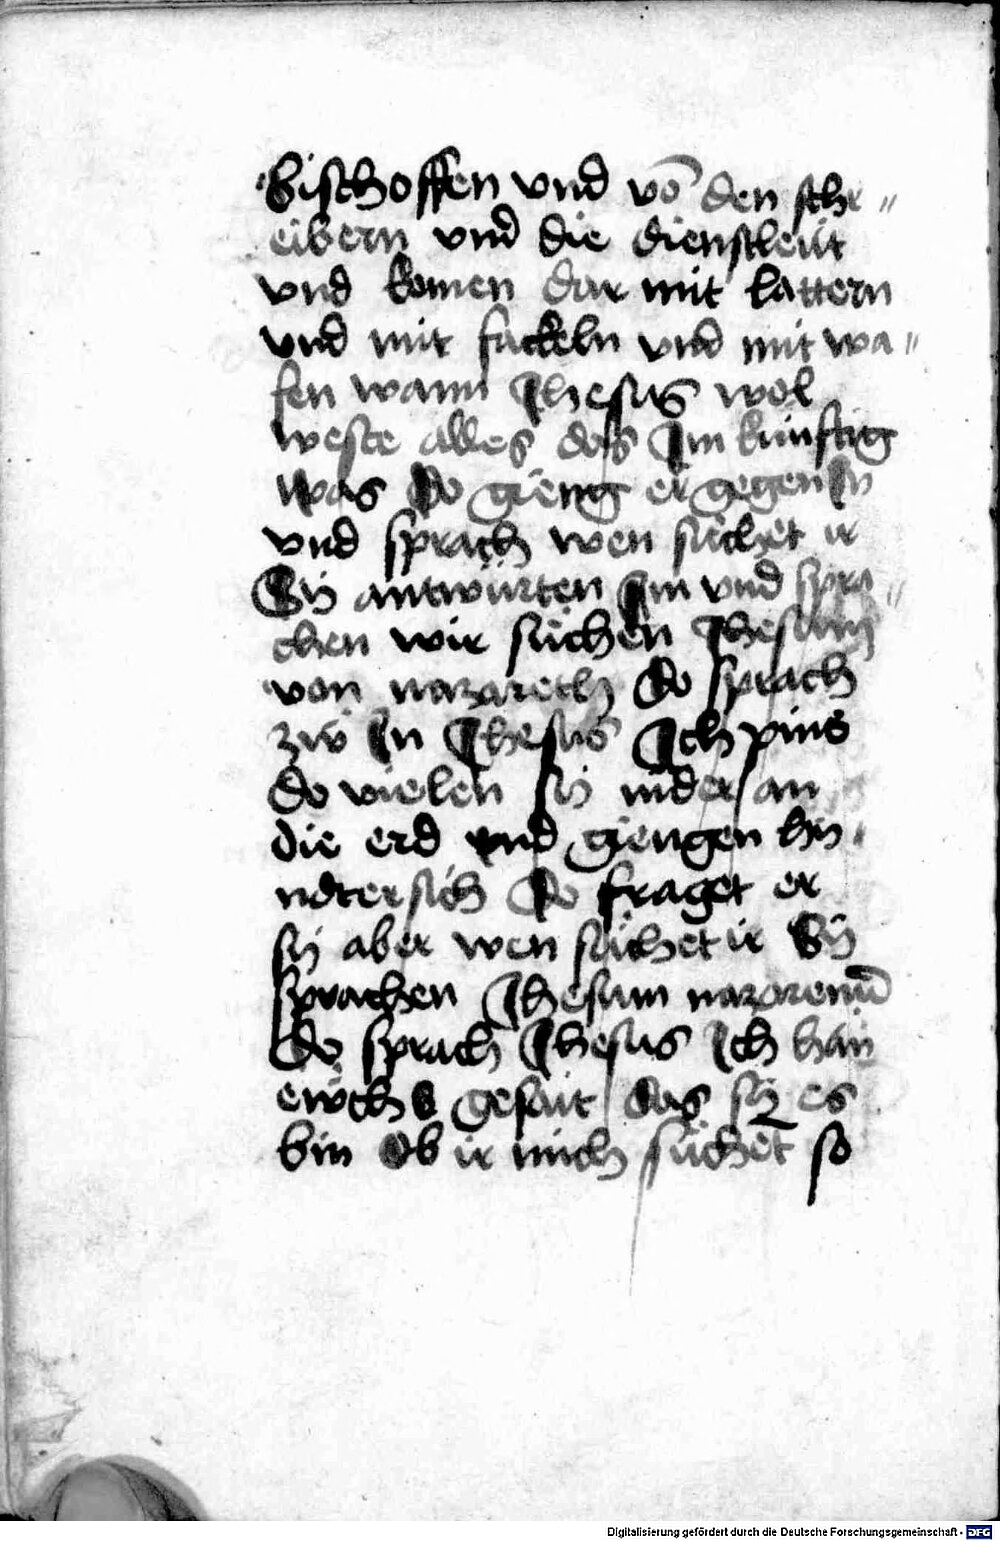 bischoffen vnd vō den schr〃
eibern vnd die dienstleüt
vnd komen dar mit lattern
vnd mit fackeln vnd mit wa〃
fen wann Jhesus wol
weste alles das Jm künftig
was Do gieng er gegen In
vnd sprach wen süchet ir
Sÿ antwürten Jm vnd spra〃
chen wir süchen Jhesum
von nazareth Do sprach
zw In Jhesus Ich pins
do vielen sÿ nider an
die erd vnd giengen hin
ndter sich Do fraget er
sÿ aber wen süchet ir Sÿ
sprachen Jhesum nazarenū
Do sprach Jhesus Ich han
ewch gesait das ich es
bin Ob ir mich süchet so
Digitalisierung gefördert durch die Deutsche Forschungsgemeinschaft - DFG